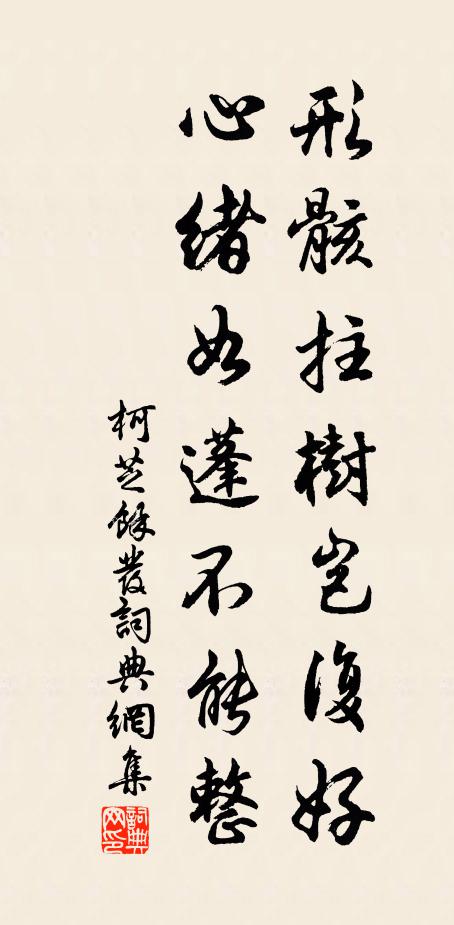 形骸拄樹豈復好
心緒如蓬不能整
柯芝餘發詞典網集
詞典網印